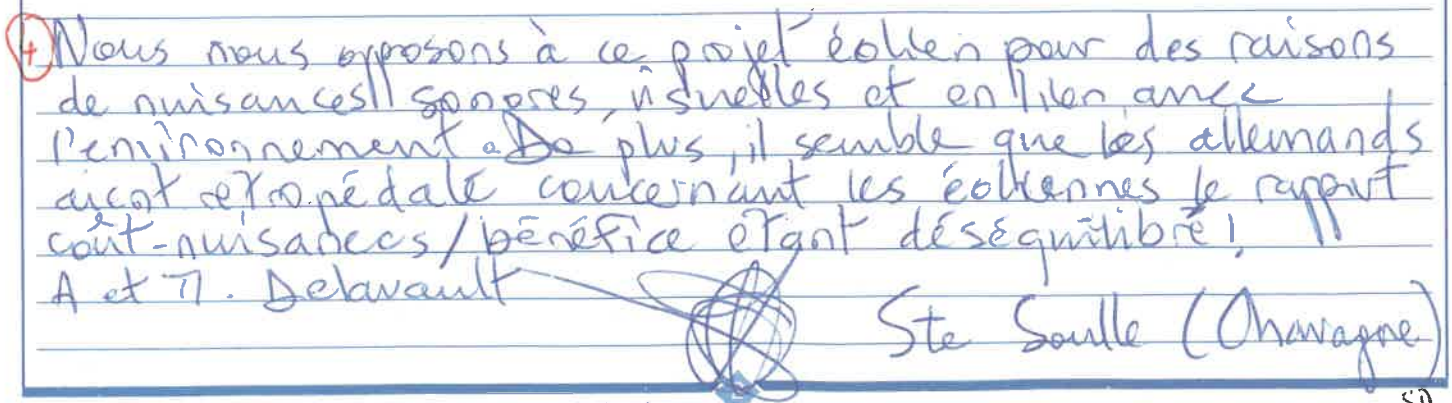 + Nous nous opposons à ce projet éolien pour des raisons
de nuisances sonores, visuelles et en lien avec
l'environnement. De plus, il semble que les allemands
aient rétropédalé concernant les éoliennes le rapport
coût-nuisances/bénéfice étant déséquilibré!
A et Delavault
Ste Soulle (Chavagne)